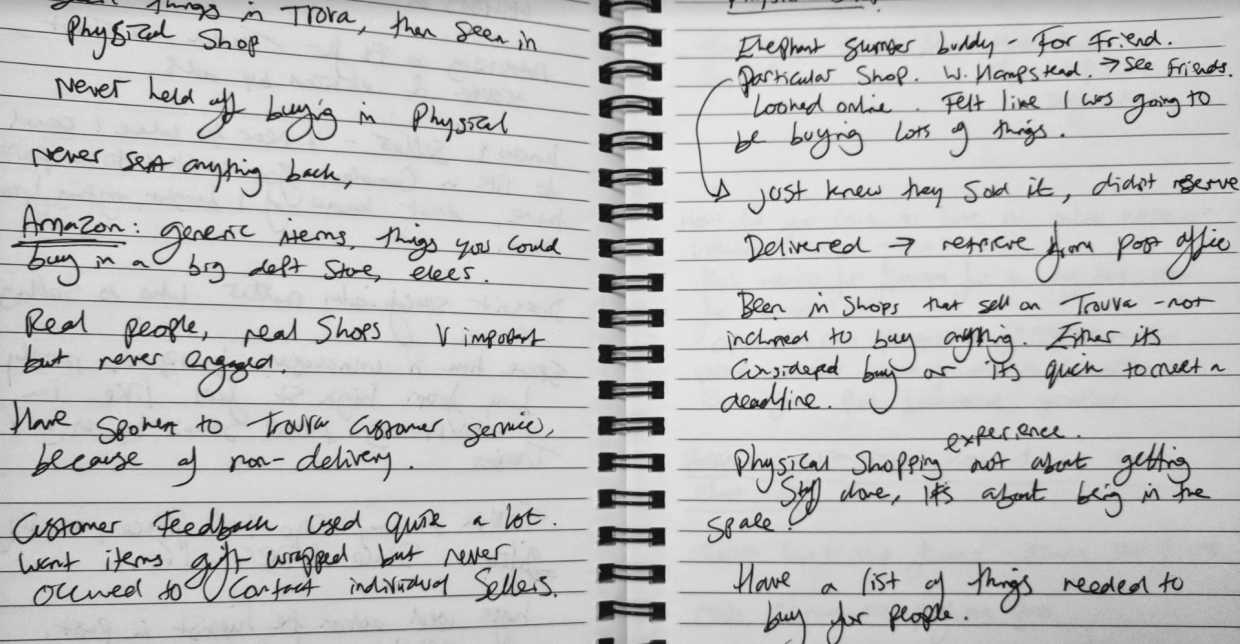 things in Trova, then seen in
Physical Shop
Never held off buying in Physical
Never sent anything back,
Amazon: generic items, things you could
buy in a big dept store, elecs.
Real people, real shops V important
but never engaged.
Have spoken to Trouva customer service,
because of non-delivery.
Customer Feedback used quite a lot.
Want items gift wrapped but never
occured to contact individual sellers.
Elephant buddy - For Friend.
Particular Shop. W. Hampstead. → see friends.
Looked online. Felt like I was going to
be buying lots of things.
just knew they sold it, didn't reserve
Delivered → retrieve from post office
Been in shops that sell on Trouva - not
inclined to buy anything. Either its
considered buy or its quick to meet a
deadline.
experience.
Physical Shopping not about getting
stuff done, it's about being in the
space.
Have a list of things needed to
buy for people.